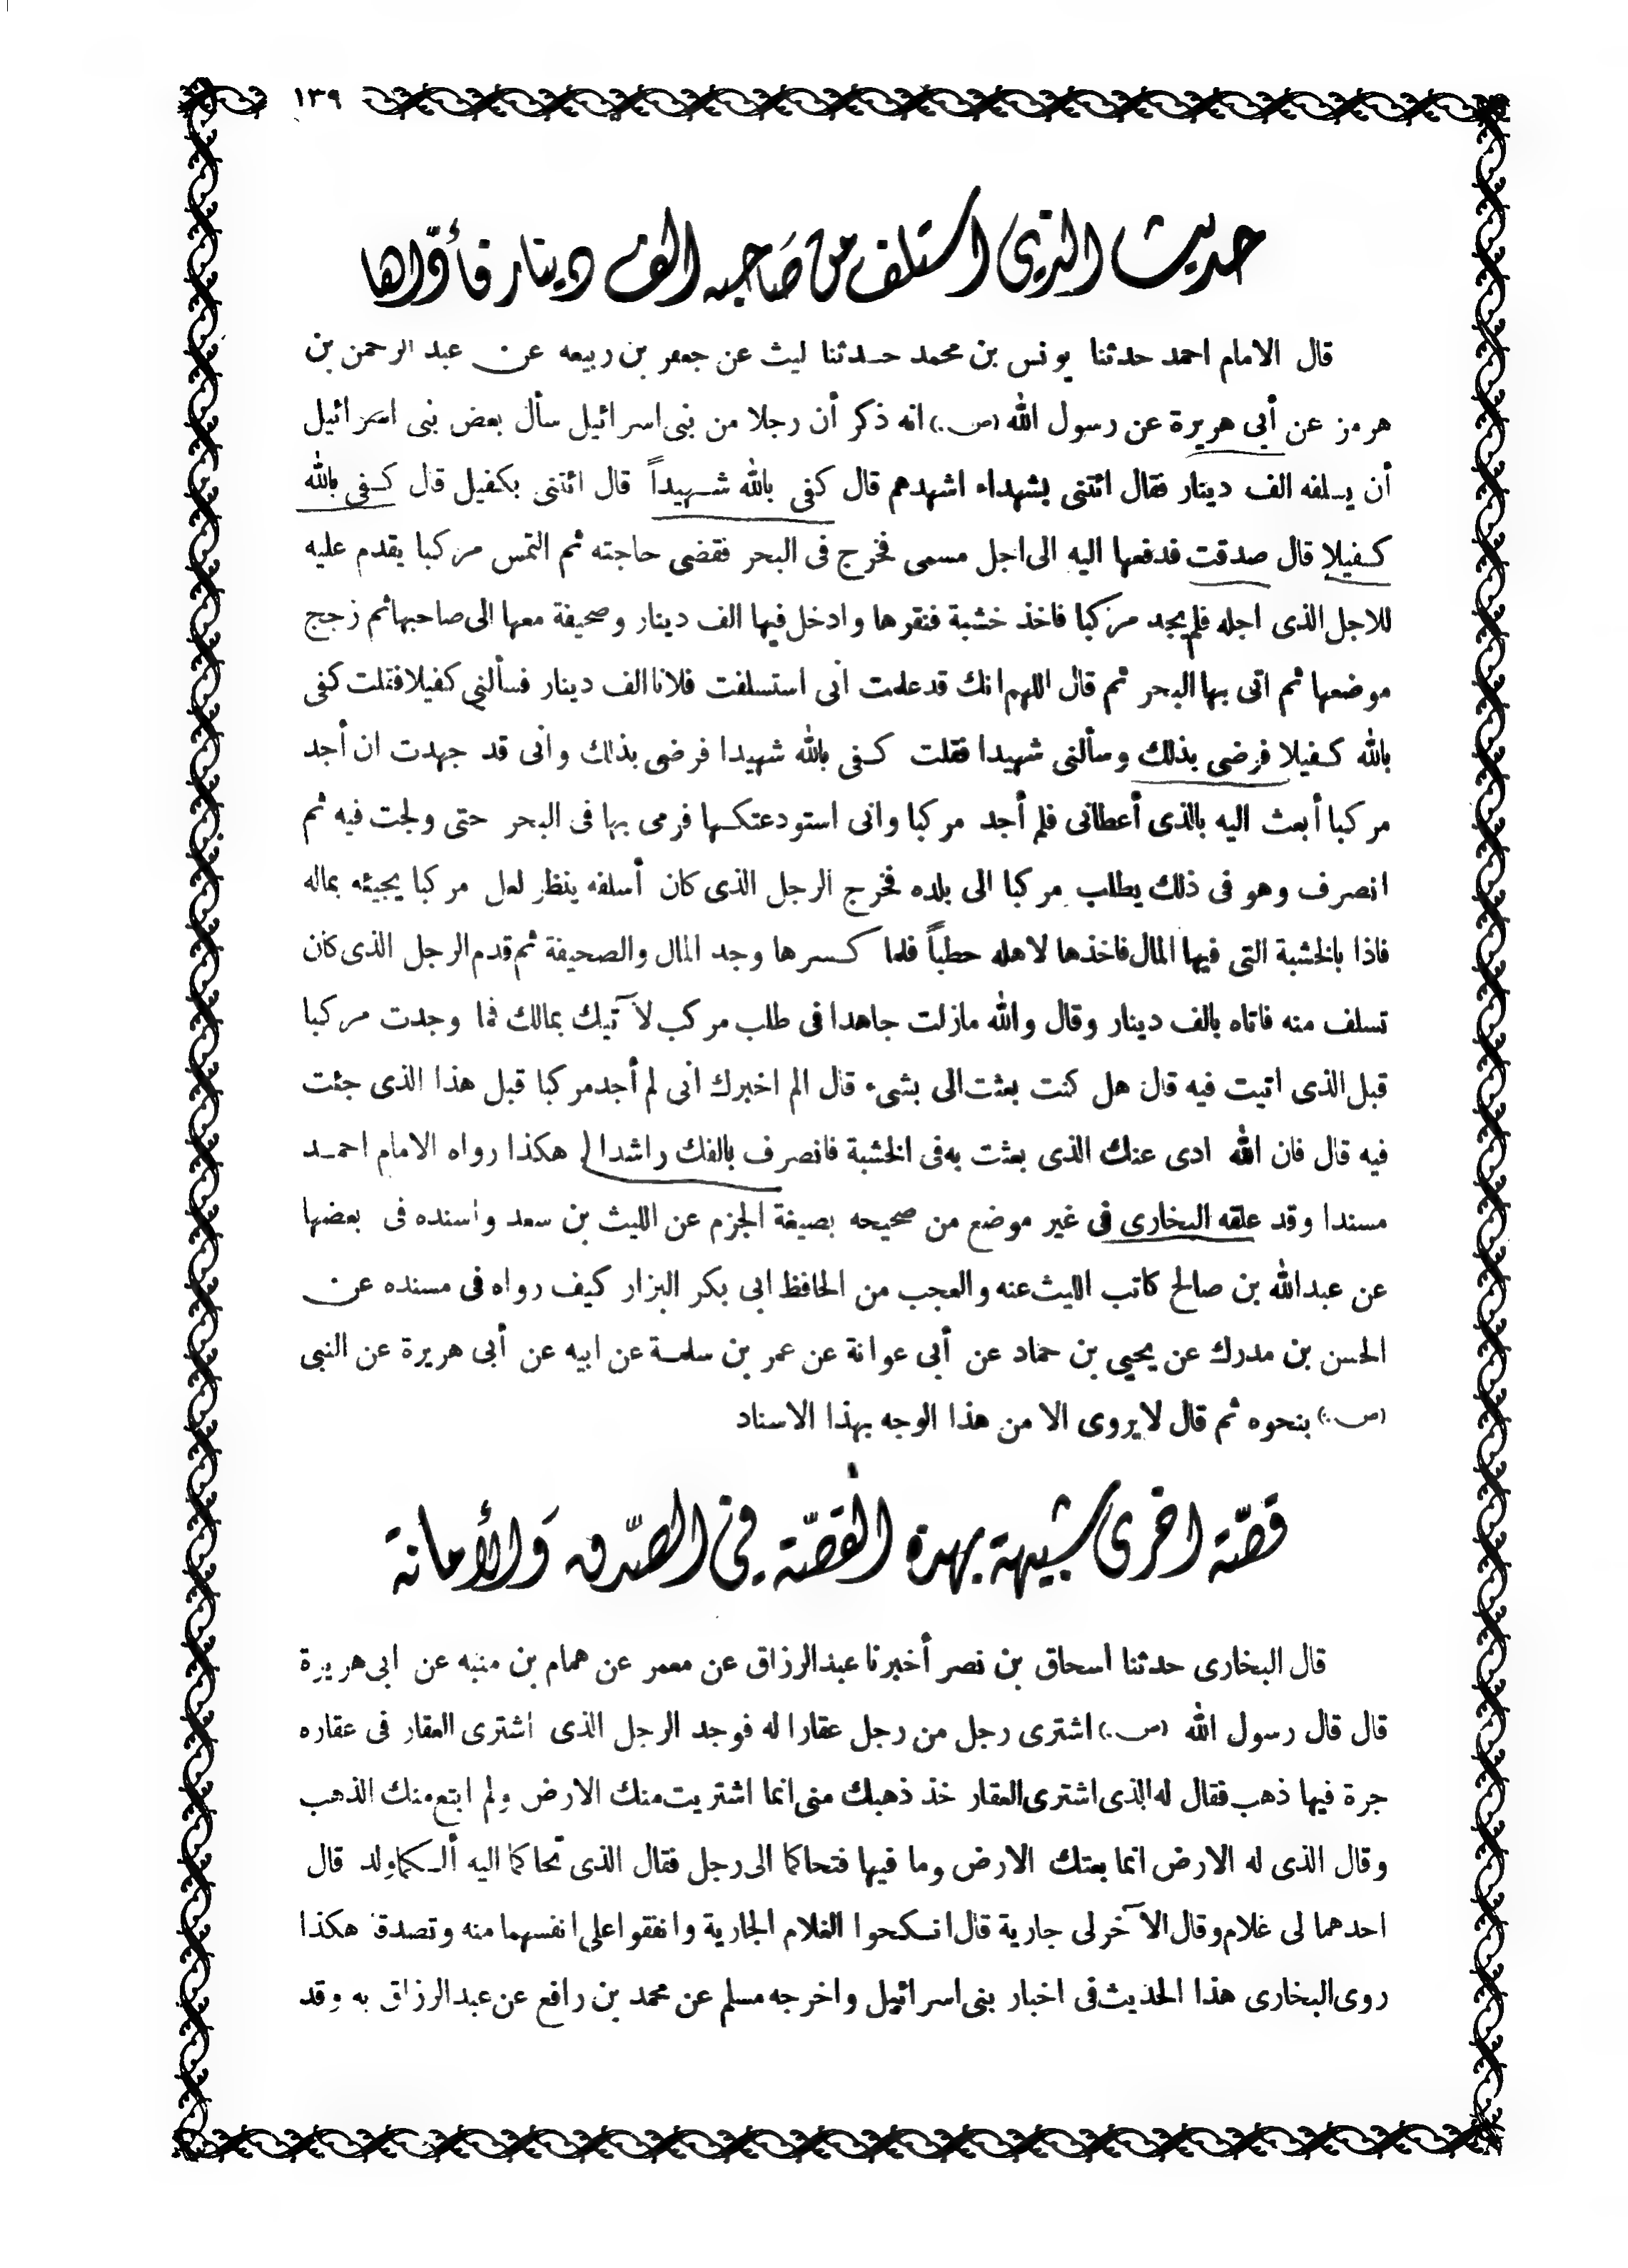 ١٣٩
حديث الذي استلف من صاحبه الف دينار فأدّاها
قال الامام احمد حدثنا يونس بن محمد حدثنا ليث عن جعفر بن ربيعه عن عبد الرحمن بن
هرمز عن أبى هريرة عن رسول الله (ص.) انه ذكر أن رجلا من بنى اسرائيل سأل بعض بنى اسرائيل
أن يسلفه الف دينار فقال ائتنى بشهداء اشهدهم قال كفى بالله شهيداً قال ائتنى بكفيل قال كفى بالله
كفيلا قال صدقت فدفعها اليه الى اجل مسمى فخرج فى البحر فقضى حاجته ثم التمس مركبا يقدم عليه
للاجل الذى اجله فلم يجد مركبا فاخذ خشبة فنقرها وادخل فيها الف دينار وصحيفة معها الى صاحبها ثم زجج
موضعها ثم اتى بها البحر ثم قال اللهم انك قد علمت أنى استسلفت فلانا الف دينار فسألنى كفيلا فقلت كفى
بالله كفيلا فرضى بذلك وسألنى شهيدا فقلت كفى بالله شهيدا فرضى بذلك وانى قد جهدت ان أجد
مركبا أبعث اليه بالذى أعطانى فلم أجد مركبا وانى استودعتكها فرمى بها فى البحر حتى ولجت فيه ثم
انصرف وهو فى ذلك يطلب مركبا الى بلده فخرج الرجل الذى كان أسلفه ينظر لعل مركبا يجيئه بماله
فاذا بالخشبة التى فيها المال فاخذها لاهله حطباً فلما كسرها وجد المال والصحيفة ثم قدم الرجل الذى كان
تسلف منه فاتاه بالف دينار وقال والله مازلت جاهدا فى طلب مركب لآتيك بمالك فما وجدت مركبا
قبل الذى اتيت فيه قال هل كنت بعثت الى بشىء قال الم اخبرك انى لم أجد مركبا قبل هذا الذى جئت
فيه قال فان الله ادى عنك الذى بعثت به فى الخشبة فانصرف بالفك راشدا هكذا رواه الامام احمد
مسندا وقد علقه البخارى فى غير موضع من صحيحه بصيغة الجزم عن الليث بن سعد واسنده فى بعضها
عن عبدالله بن صالح كاتب الليث عنه والعجب من الحافظ ابى بكر البزار كيف رواه فى مسنده عن
الحسن بن مدرك عن يحيى بن حماد عن أبى عوانة عن عمر بن سلمة عن ابيه عن أبى هريرة عن النبى
(ص.) بنحوه ثم قال لا يروى الا من هذا الوجه بهذا الاسناد
قصّة اخرى شبيهة بهذه القصّة في الصّدق وَالأمانة
قال البخارى حدثنا اسحاق بن نصر أخبرنا عبد الرزاق عن معمر عن همام بن منبه عن ابى هريرة
قال قال رسول الله (ص.) اشترى رجل من رجل عقارا له فوجد الرجل الذى اشترى العقار فى عقاره
جرة فيها ذهب فقال له الذى اشترى العقار خذ ذهبك منى انما اشتريت منك الارض ولم ابتع منك الذهب
وقال الذى له الارض انما بعتك الارض وما فيها فتحاكما الى رجل فقال الذى تحاكما اليه ألكما ولد قال
احدهما لى غلام وقال الآخر لى جارية قال انكحوا الغلام الجارية وانفقوا على انفسهما منه وتصدقا هكذا
روى البخارى هذا الحديث فى اخبار بنى اسرائيل واخرجه مسلم عن محمد بن رافع عن عبد الرزاق به وقد